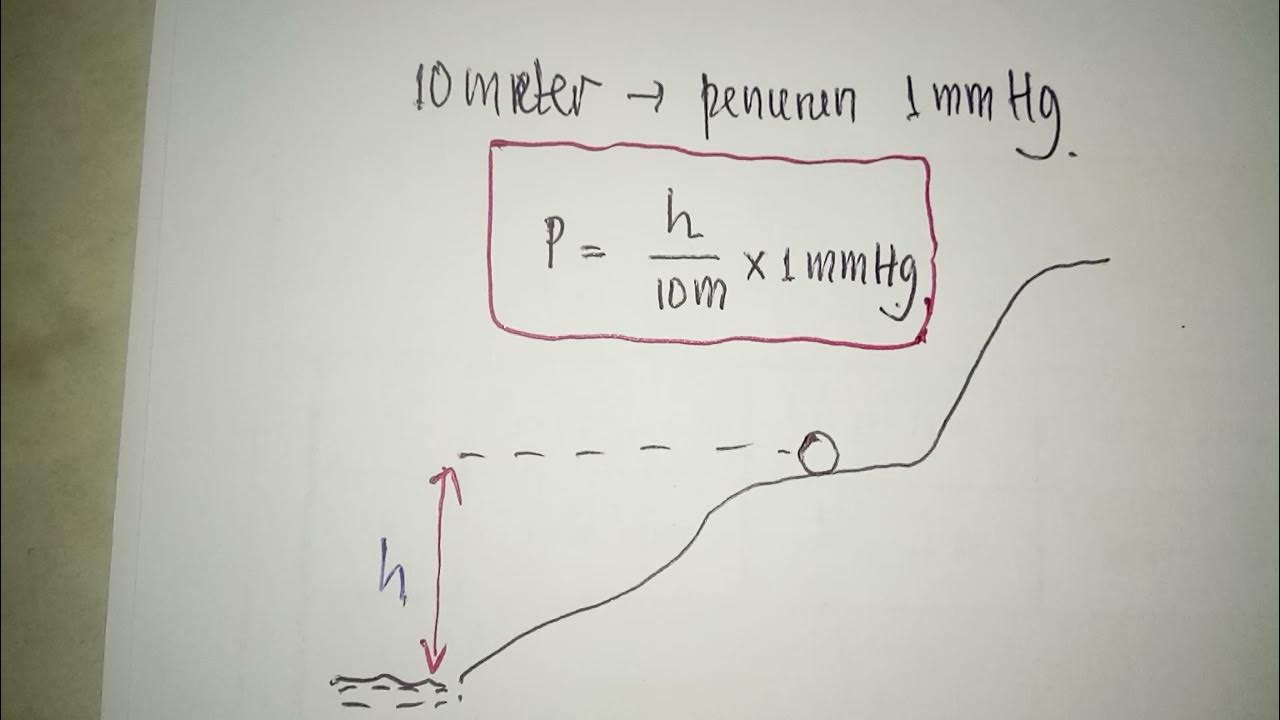 10 meter → penurun 1 mm Hg.
P = h/10m × 1 mmHg
h